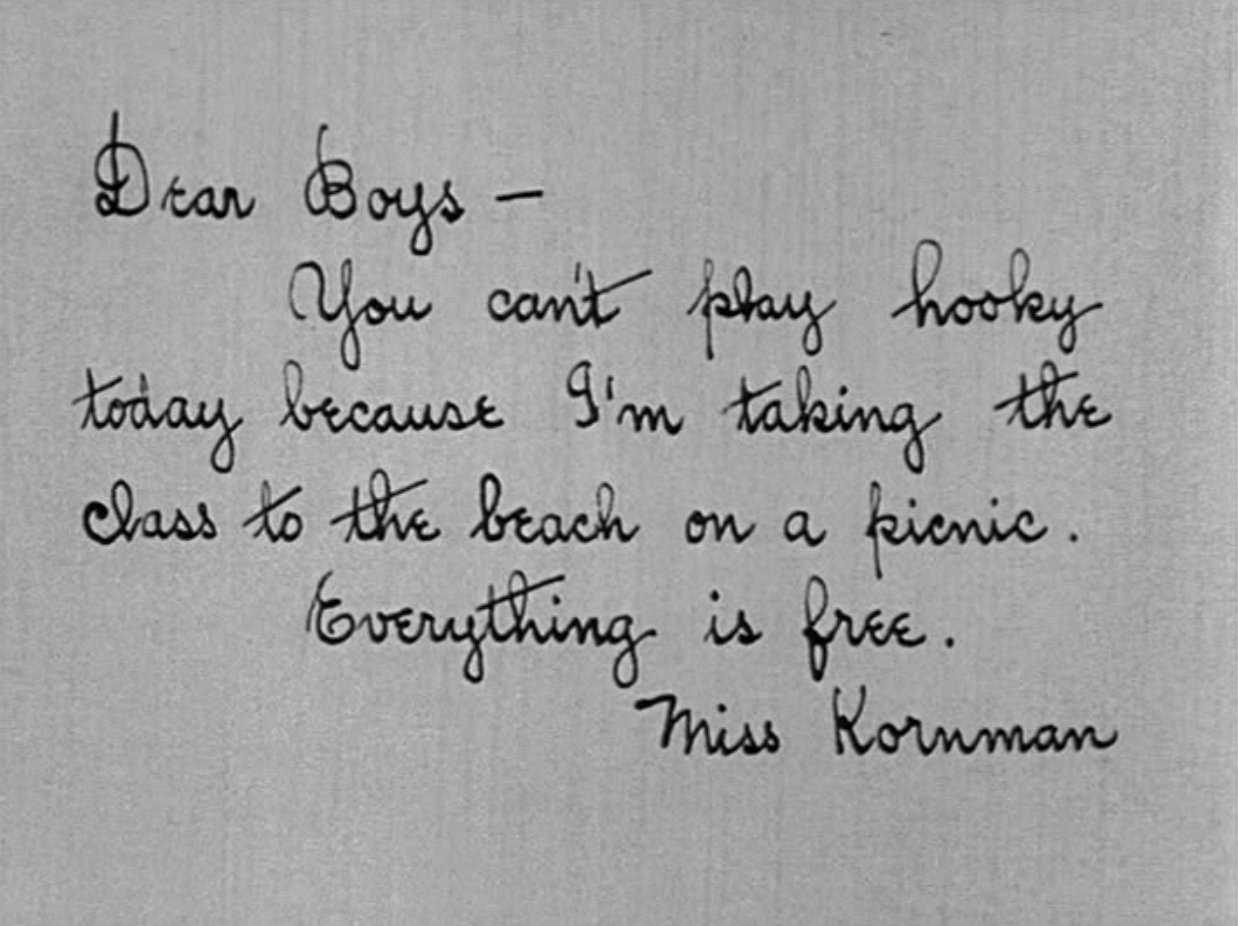 Dear Boys —
You can't play hooky
today because I'm taking the
class to the beach on a picnic.
Everything is free.
Miss Kornman